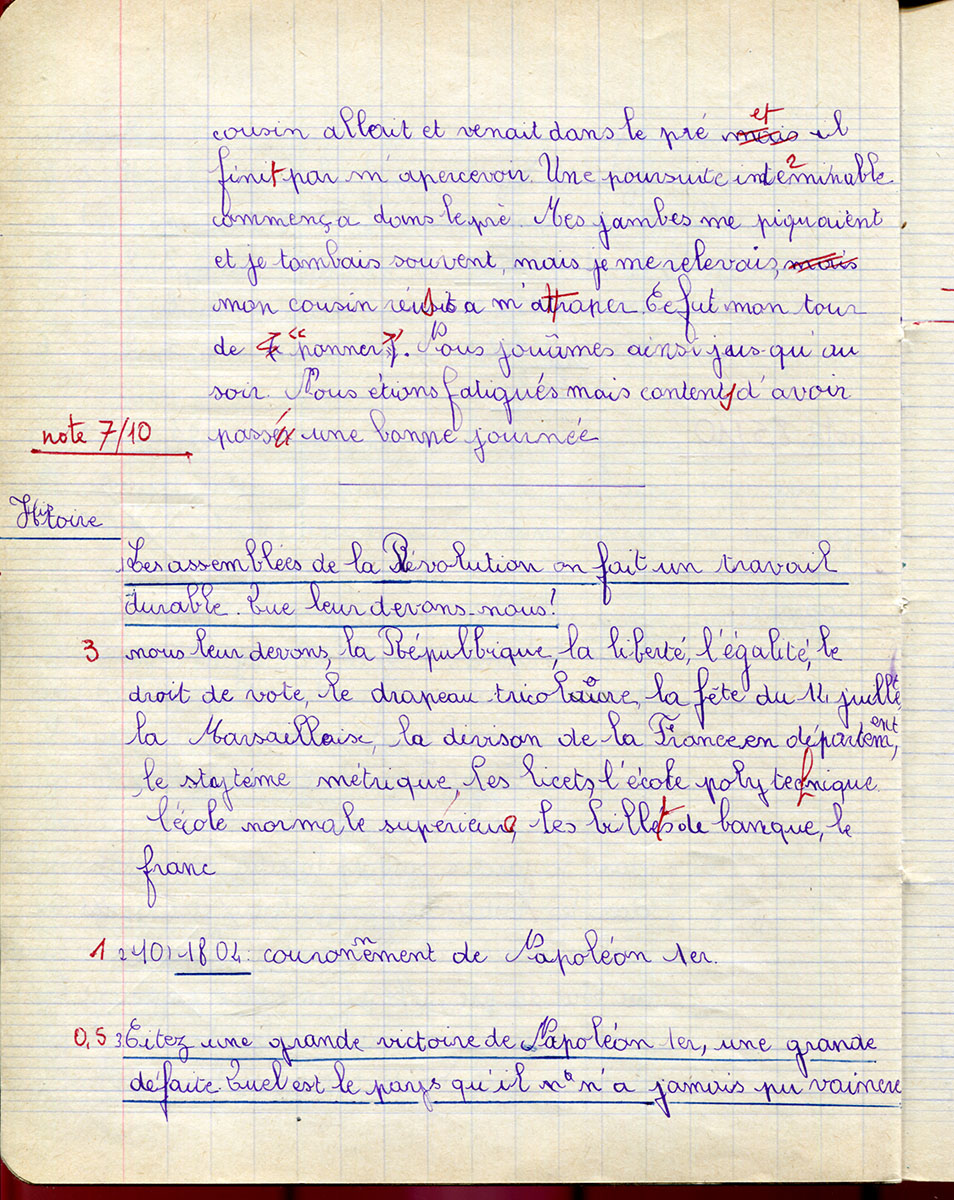 cousin allait et venait dans le pré mais et il
finit par m'apercevoir. Une poursuite interminable
commença dans le pré. Mes jambes me piquaient
et je tombais souvent, mais je me relevais, mais
mon cousin réussit a m'attraper. Ce fut mon tour
de " panner ". Nous jouâmes ainsi jus-qu'au
soir. Nous étions fatigués mais contents d'avoir
note 7/10 passé une bonne journée
Histoire
Les assemblées de la Révolution on fait un travail
durable. Que leur devons-nous!
3 nous leur devons, la Répubbique, la liberté, l'égalité, le
droit de vote, le drapeau tricolore, la fête du 14 juillet
la Marsaillaise, la divison de la France en département,
le systéme métrique, les licets, l'école polytechnique
l'école normale supérieure, les billets de banque, le
franc
1 2-10) 1804: couronnement de Napoléon 1er.
0,5 3 Citez une grande victoire de Napoléon 1er, une grande
défaite. Quel est le pays qu'il n'a jamais pu vaincre